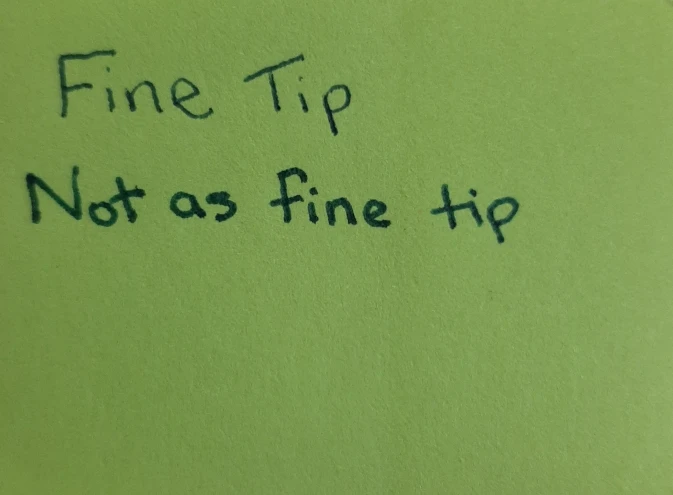 Fine Tip
Not as fine tip